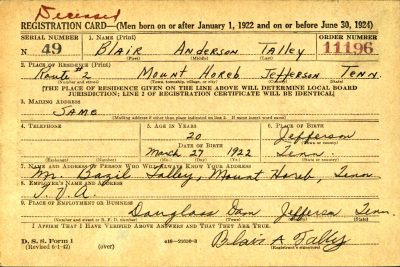 Deceased
REGISTRATION CARD—(Men born on or after January 1, 1922 and on or before June 30, 1924)
SERIAL NUMBER 1. NAME (Print) ORDER NUMBER
N 49 BLAIR ANDERSON TALLEY 11196
(First) (Middle) (Last)
2. PLACE OF RESIDENCE (Print)
Route #2 Mount Horeb Jefferson Tenn.
(Number and street) (Town, township, village, or city) (County) (State)
[THE PLACE OF RESIDENCE GIVEN ON THE LINE ABOVE WILL DETERMINE LOCAL BOARD
JURISDICTION; LINE 2 OF REGISTRATION CERTIFICATE WILL BE IDENTICAL]
3. MAILING ADDRESS
SAME
[Mailing address if other than place indicated on line 2. If same insert word same]
4. TELEPHONE 5. AGE IN YEARS 6. PLACE OF BIRTH
20 Jefferson
DATE OF BIRTH (Town or county)
March 27 1922 Tenn.
(Exchange) (Number) (Mo.) (Day) (Yr.) (State or country)
7. NAME AND ADDRESS OF PERSON WHO WILL ALWAYS KNOW YOUR ADDRESS
Mr. Bazil Talley, Mount Horeb, Tenn.
8. EMPLOYER'S NAME AND ADDRESS
T. V. A.
9. PLACE OF EMPLOYMENT OR BUSINESS
Douglass Dam Jefferson Tenn.
(Number and street or R. F. D. number) (Town) (County) (State)
I AFFIRM THAT I HAVE VERIFIED ABOVE ANSWERS AND THAT THEY ARE TRUE.
D. S. S. Form 1 Blair A. Talley
(Revised 6-1-42) (over) (Registrant's signature)